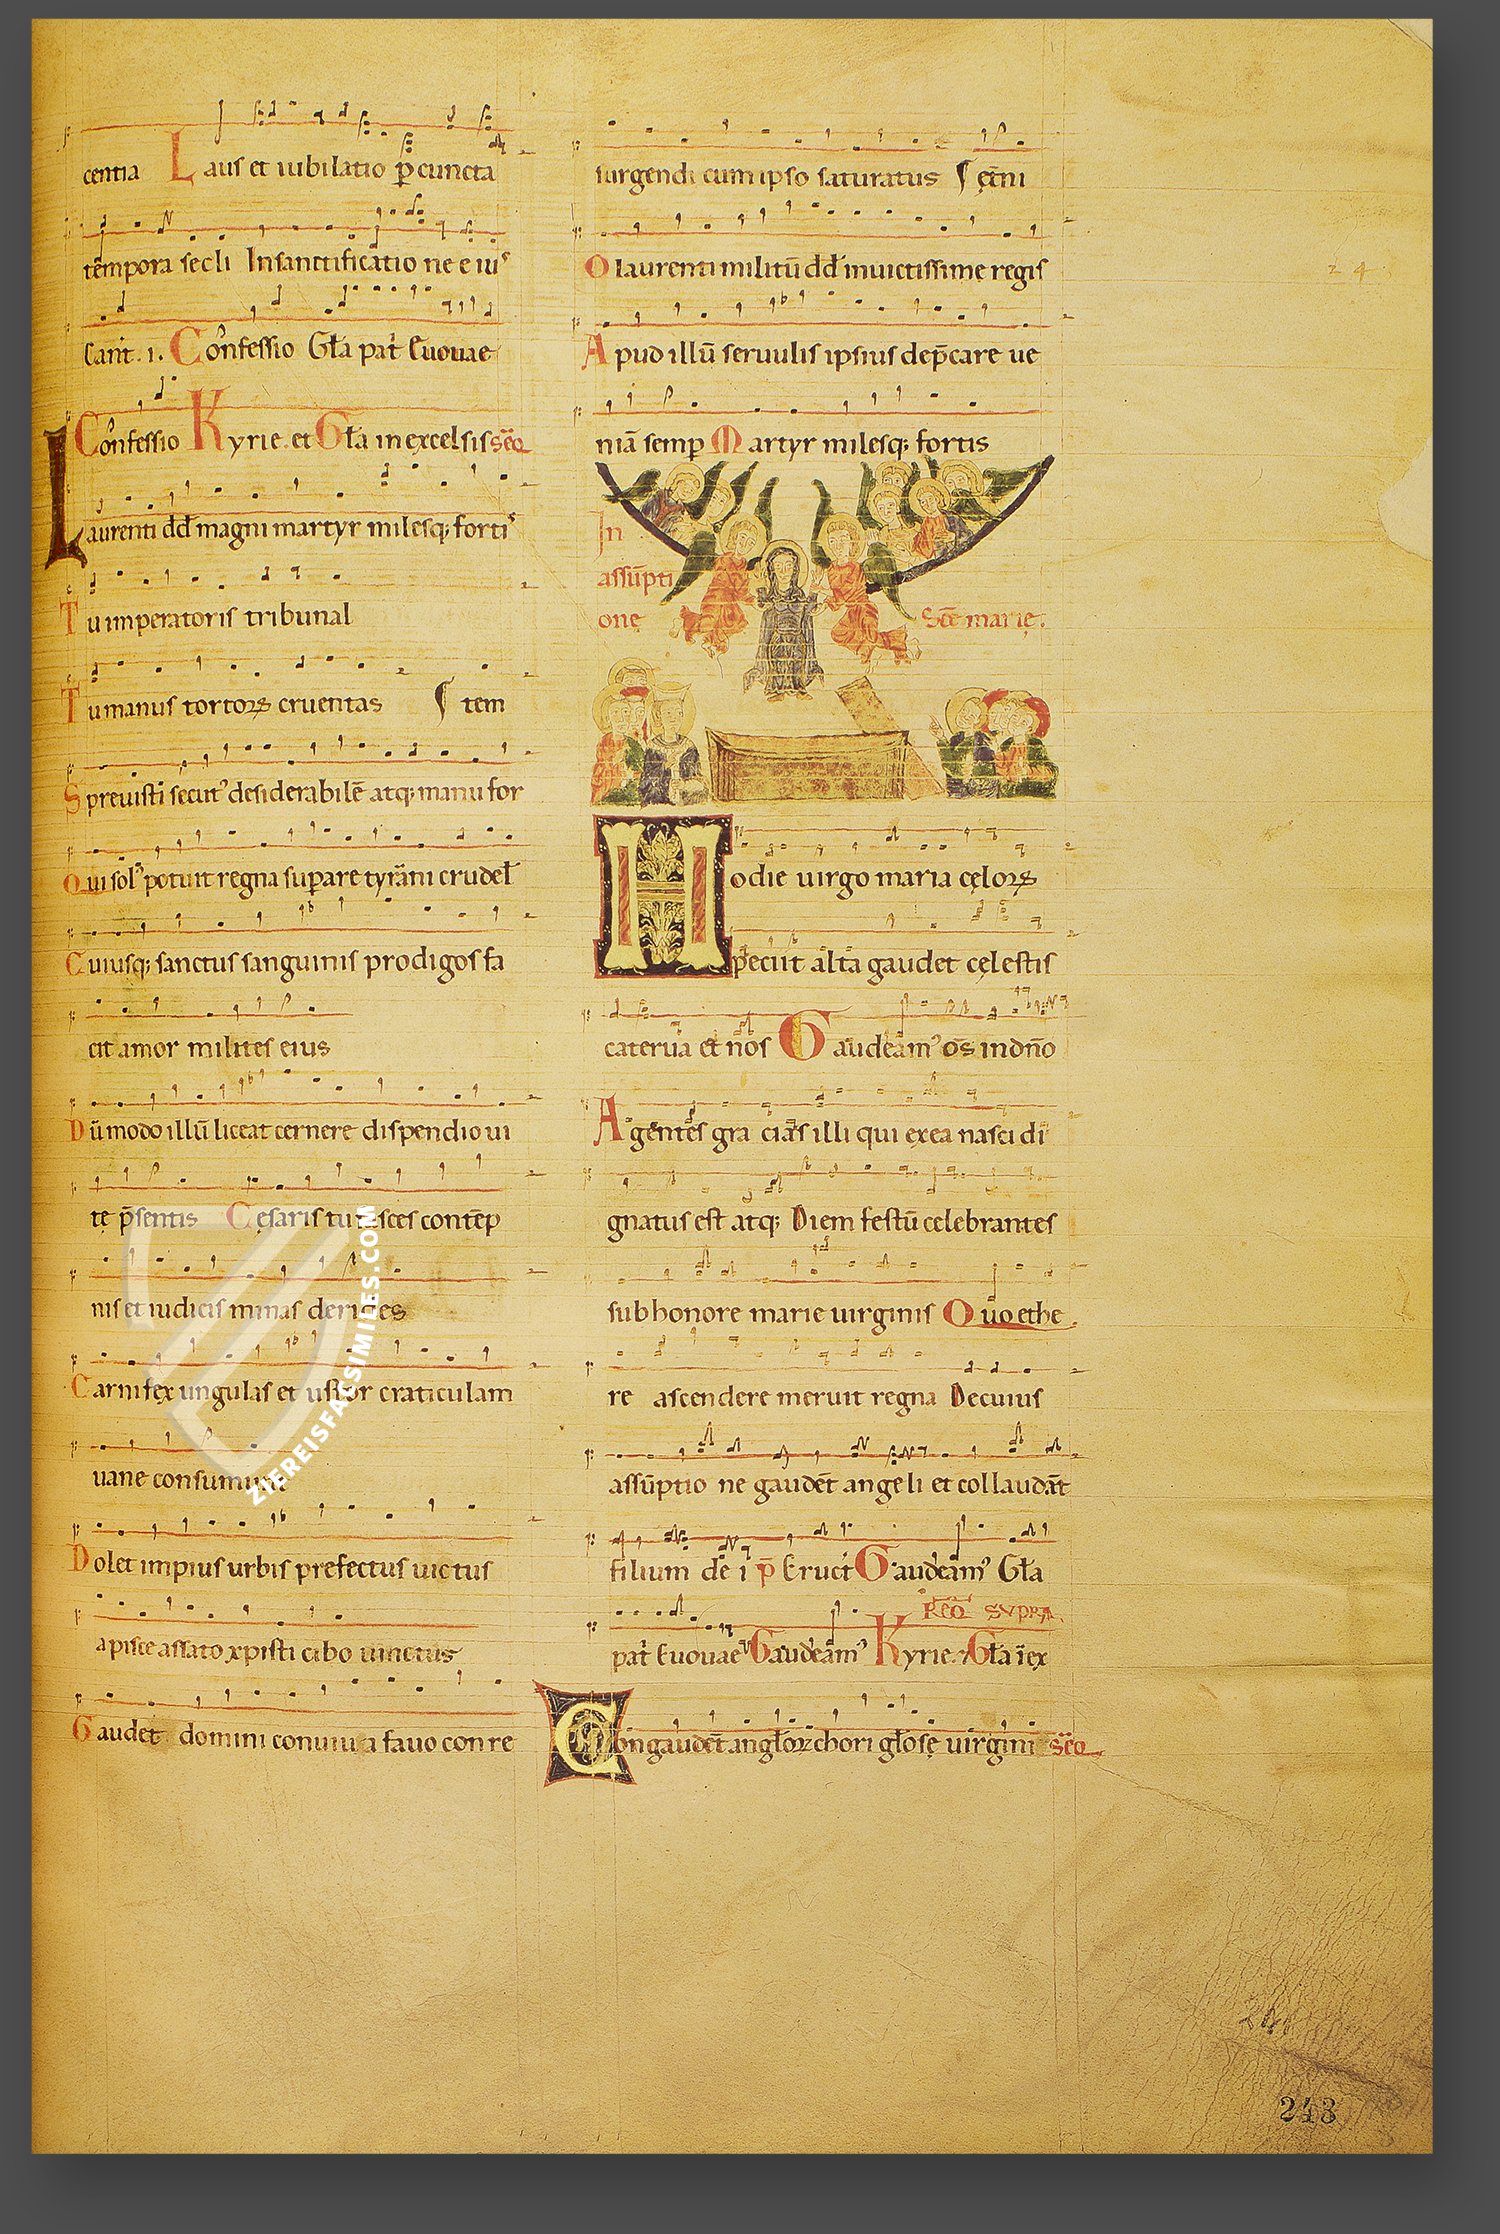 centia Laus et iubilatio p̄cuncta
tēmpora secli Insanctificatio ne e iuˢ
Cant̄. 1. Confessio Gl̄a pat̄ Euouae
Confessio Kyrie. et Gl̄a in excelsis sēq̄
Laurenti dd̄ magni martyr milesq; fortiˢ
Tu imperatoris tribunal
Tu manus tortoꝝ cruentas Item
Spreuisti secut᾿ desiderabilē atq; manu for
Qui sol᾿ potuit regna suꝑare tyrāni crudel̄
Cuiusq; sanctus sanguinis prodigos fa
cit amor milites eius
Dū modo illū liceat cernere dispendio ui
tę p̄sentis Cęsaris tu fasces contēp
nis et iudicis minas derides
Carnifex ungulas et ustor craticulam
uane consumunt
Dolet impius urbis prefectus uictus
a pisce assato xpisti cibo uinctus
Gaudet domini conuiua fauo con re
surgendi cum ipso saturatus Itēm
O laurenti militū dd̄ inuictissime regis
Apud illū seruulis ipsius dep̄care ue
niā semꝑ Martyr milesq; fortis
In
assūpti
onę Scē marię.
Hodie uirgo maria cęloꝝ
petiit alta gaudet cęlestis
caterua et nos Gaudeam᾿ om̄s in dn̄o
Agentes gra cias illi qui ex ea nasci di
gnatus est atq; Diem festū celebrantes
sub honore marie uirginis Quo ethe
re ascendere meruit regna De cuius
assūptio ne gaudēt angeli et collaudāt
filium dē i p̄ Eruct̄ Gaudeam᾿ Gl̄a
REQ̄ SVPRA.
pat̄ Euouae Gaudeam᾿ Kyrie. ⁊ Gl̄a ī ex
Congaudēt angl̄oꝝ chori gl̄osę uirgini sēq̄
24
243
ZIEREISFACSIMILES.COM